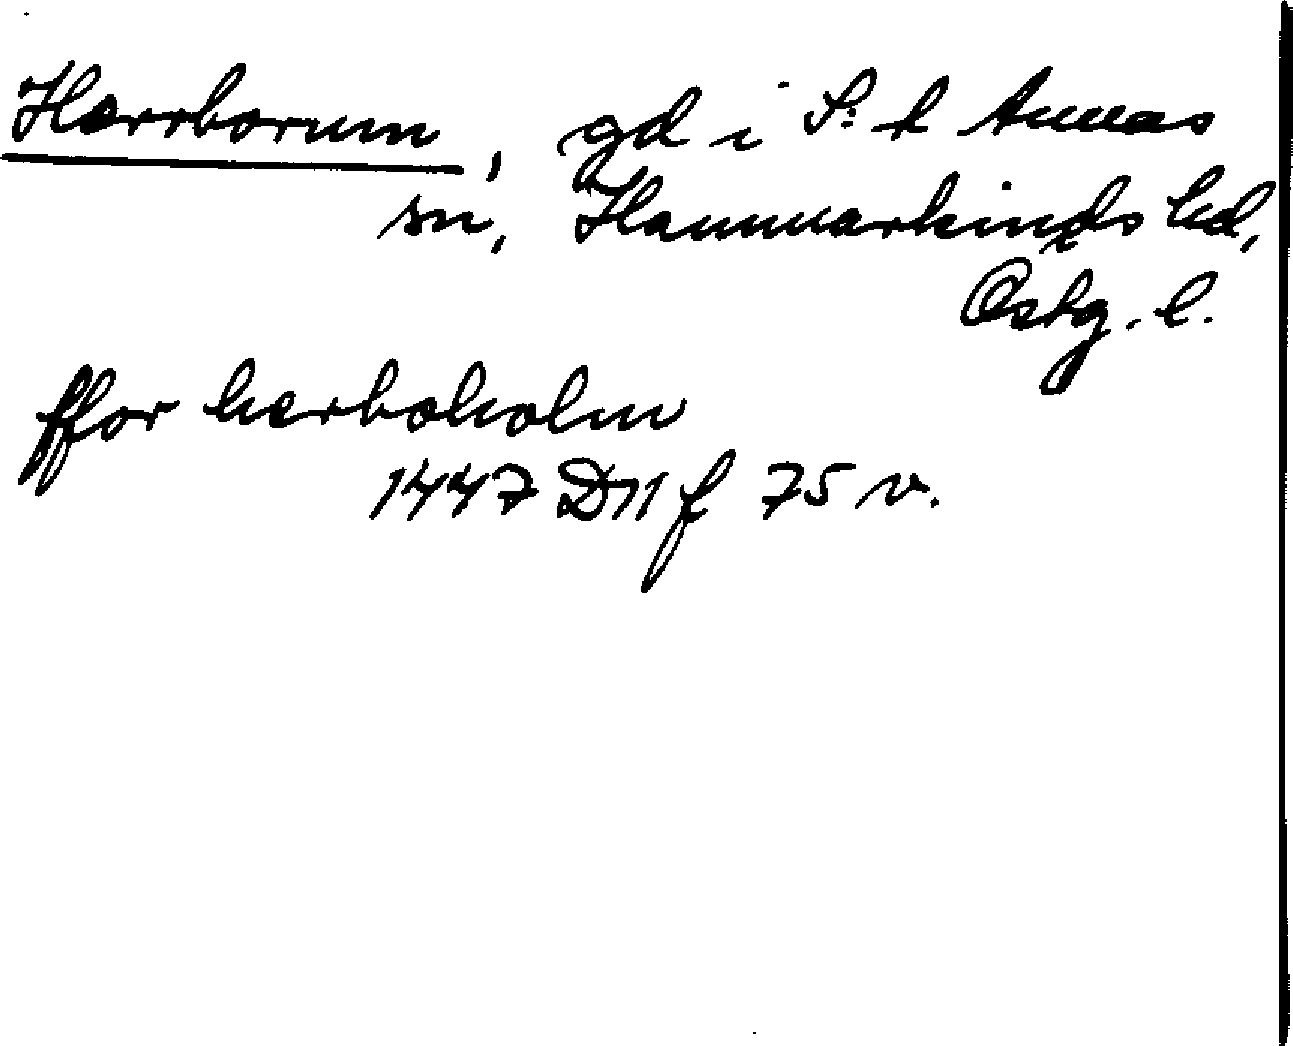 Herrborum, gd i S:t Annas
sn, Hammarkinds hd,
Östg. l.
ffor herboholm
1447 D11 f 75 v.